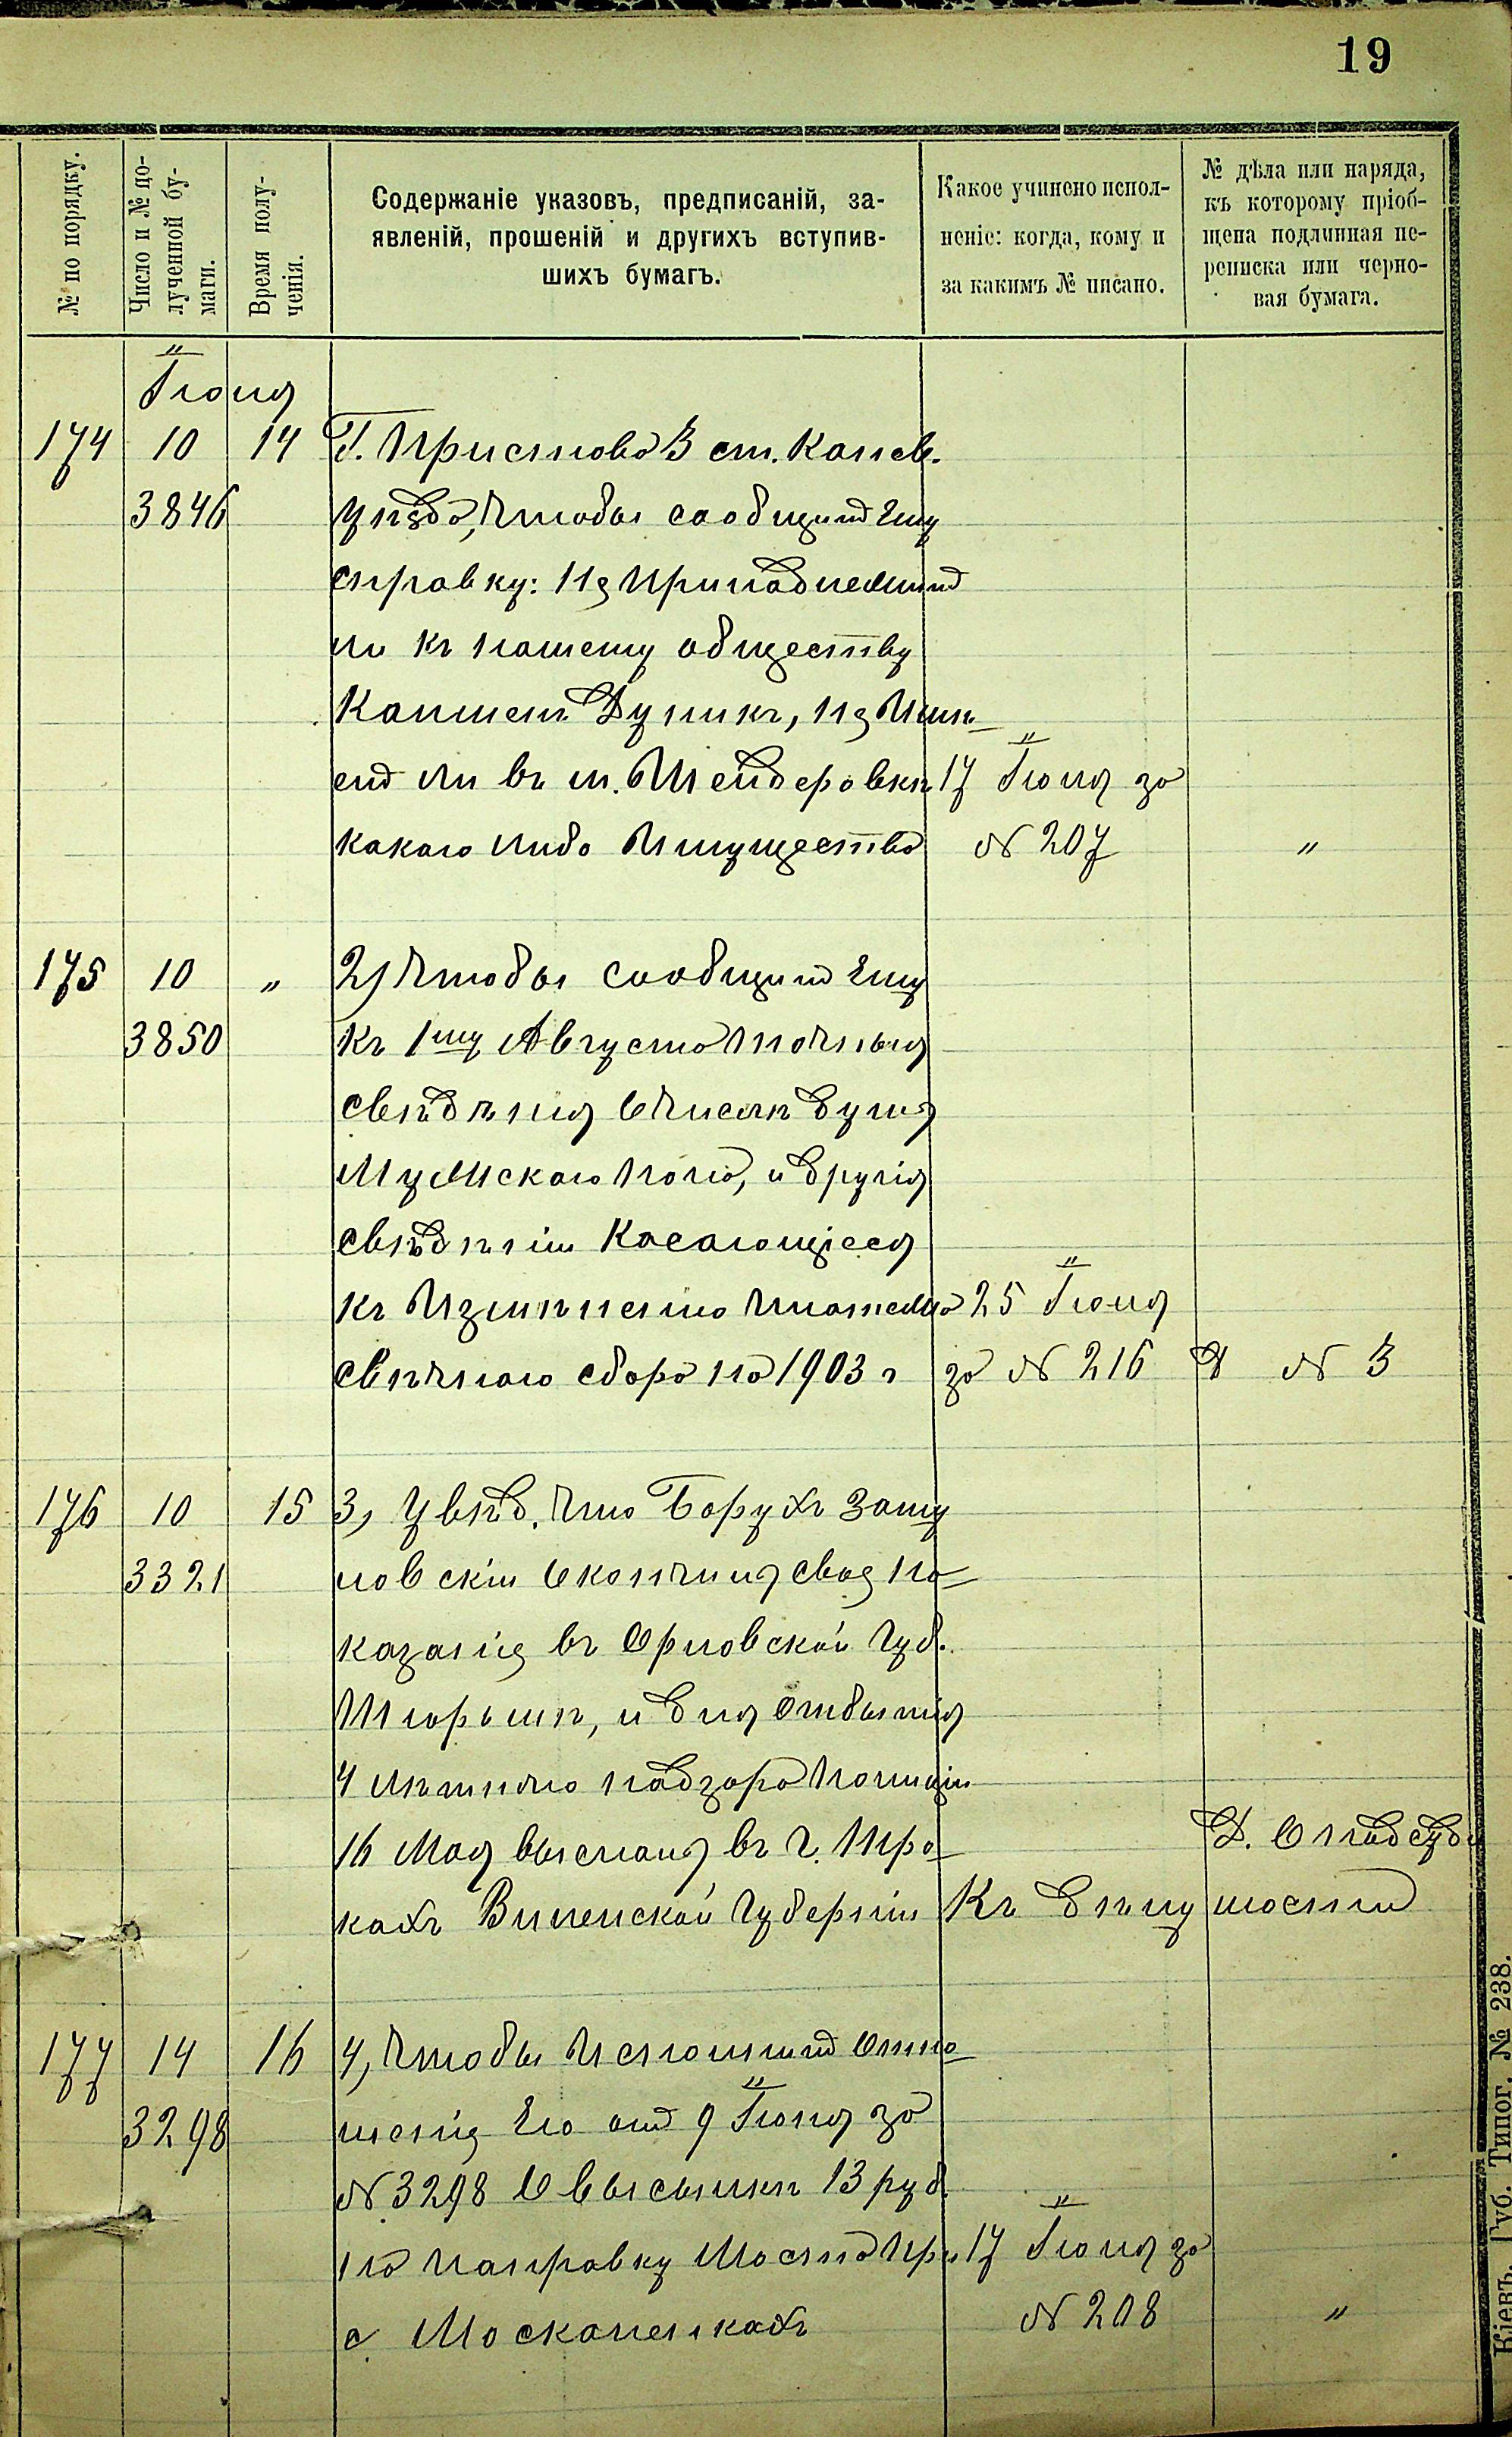 19
№ по порядку.
Число и № по-
лученной бу-
маги.
Время полу-
ченія.
Содержаніе указовъ, предписаній, за-
явленій, прошеній и другихъ вступив-
шихъ бумагъ.
Какое учинено испол-
неніе: когда, кому и
за какимъ № писано.
№ дѣла или наряда,
къ которому пріоб-
щена подлинная пе-
реписка или черно-
вая бумага.
Іюня
174 10 14 Г. Приставъ 3 ст. Канев.
3846 Уѣзда, чтобы сообщить Ему
справку: Не принадлежитъ
ли къ нашему обществу
Капшель Дупикъ, не Имѣ-
етъ ли въ м. Шендеровкѣ 17 Іюня за
какого либо Имущества № 207 "
175 10 " 2) Чтобы сообщить Ему
3850 къ 1му Августа точныя
свѣденія о числѣ душъ
Мужскаго пола, и другія
свѣдѣнія Касающіеся
къ Измѣненію 25 Іюня
свѣчнаго сбора на 1903 г за № 216 Д № 3
176 10 15 3, Увѣд. что Борухъ
3321 окончилъ свое на-
казаніе въ Орловской Губ.
Тюрьмѣ, и для отбытія
4 лѣтняго надзора полиціи
16 Мая высланъ въ г. Тро-
Д.
кахъ Виленской Губерніи Къ дѣлу
177 14 16 4, Чтобы Исполнить отно-
3298 шеніе Его отъ 9 Іюня за
№ 3298 О высылкѣ 13 руб.
на поправку Моста при 17 Іюня за
с. Москаленкахъ № 208 "
Кіевъ. Губ. Типог. № 238.